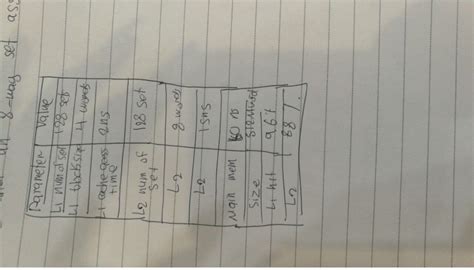 8-way set
Parameter Value
L1 num of set 128 set
L1 block size 4 words
L1 access time 2ns
L2 num of set 128 set
L2 8 words
L2 15ns
Main mem 60 ns
Size
L1 hit 96%
L2 88%